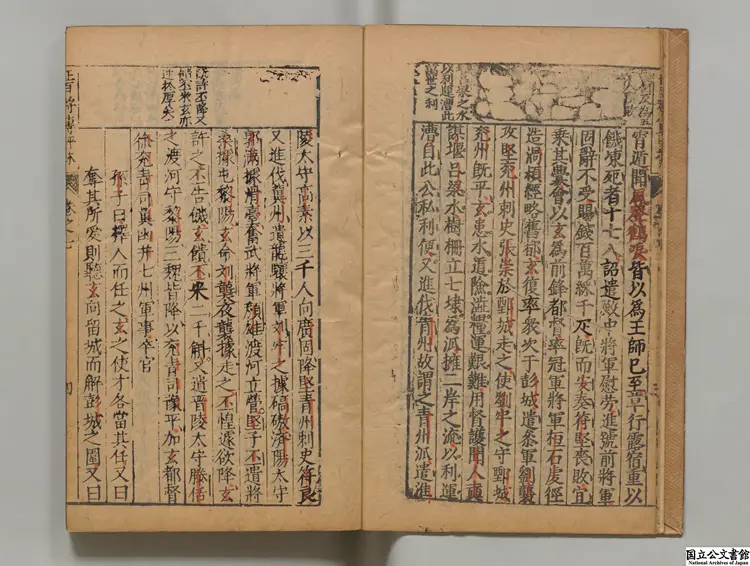 宵遁聞風聲鶴唳皆以為王師已至草行露宿重以
飢凍死者十七八詔遣殿中將軍慰勞進號前將軍
固辭不受賜錢百萬綵千疋旣而安奏苻堅喪敗宜
乘其釁會以玄為前鋒都督率冠軍將軍桓石虔徑
造渦潁經略舊都玄復率衆次于彭城遣叅軍劉襲
攻堅兗州刺史張崇於鄄城走之使劉牢之守鄄城
兗州旣平玄患水道險澁糧運艱難用督護聞人奭
謀堰呂梁水樹柵立七埭為派擁二岸之流以利運
漕自此公私利便又進伐青州故謂之青州派遣淮
梁之水
以利運漕此
世之利
陵太守高素以三千人向廣固降堅青州刺史苻良
又進伐冀州遣龍驤將軍劉牢之據碻磝濟陽太守
郭滿據滑臺奮武將軍顔雄渡河立營堅子丕遣將
桑據屯黎陽玄命劉襲夜襲據走之丕惶遽欲降玄
許之丕告飢玄饋丕米二千斛又遣晉陵太守滕恬
之渡河守黎陽三魏皆降以兗青司豫平加玄都督
徐兗青司冀幽并七州軍事卒官
孫子曰擇人而任之玄之使才各當其任又曰
奪其所愛則聽玄向留城而解彭城之圍又曰
旣許丕降又
饋丕米玄亦
過於厚矣
百將傳評林
卷之七
国立公文書館
National Archives of Japan